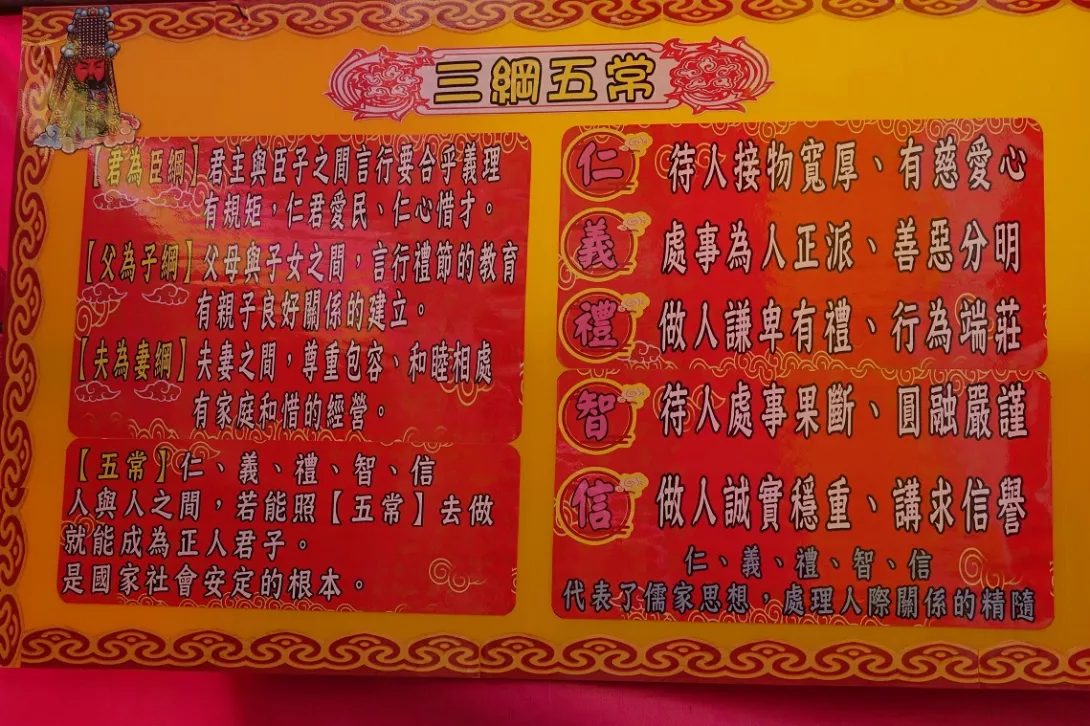 三綱五常
【君為臣綱】君主與臣子之間言行要合乎義理
有規矩，仁君愛民、仁心惜才。
【父為子綱】父母與子女之間，言行禮節的教育
有親子良好關係的建立。
【夫為妻綱】夫妻之間，尊重包容、和睦相處
有家庭和惜的經營。
【五常】仁、義、禮、智、信
人與人之間，若能照【五常】去做
就能成為正人君子。
是國家社會安定的根本。
仁 待人接物寬厚、有慈愛心
義 處事為人正派、善惡分明
禮 做人謙卑有禮、行為端莊
智 待人處事果斷、圓融嚴謹
信 做人誠實穩重、講求信譽
仁、義、禮、智、信
代表了儒家思想，處理人際關係的精隨